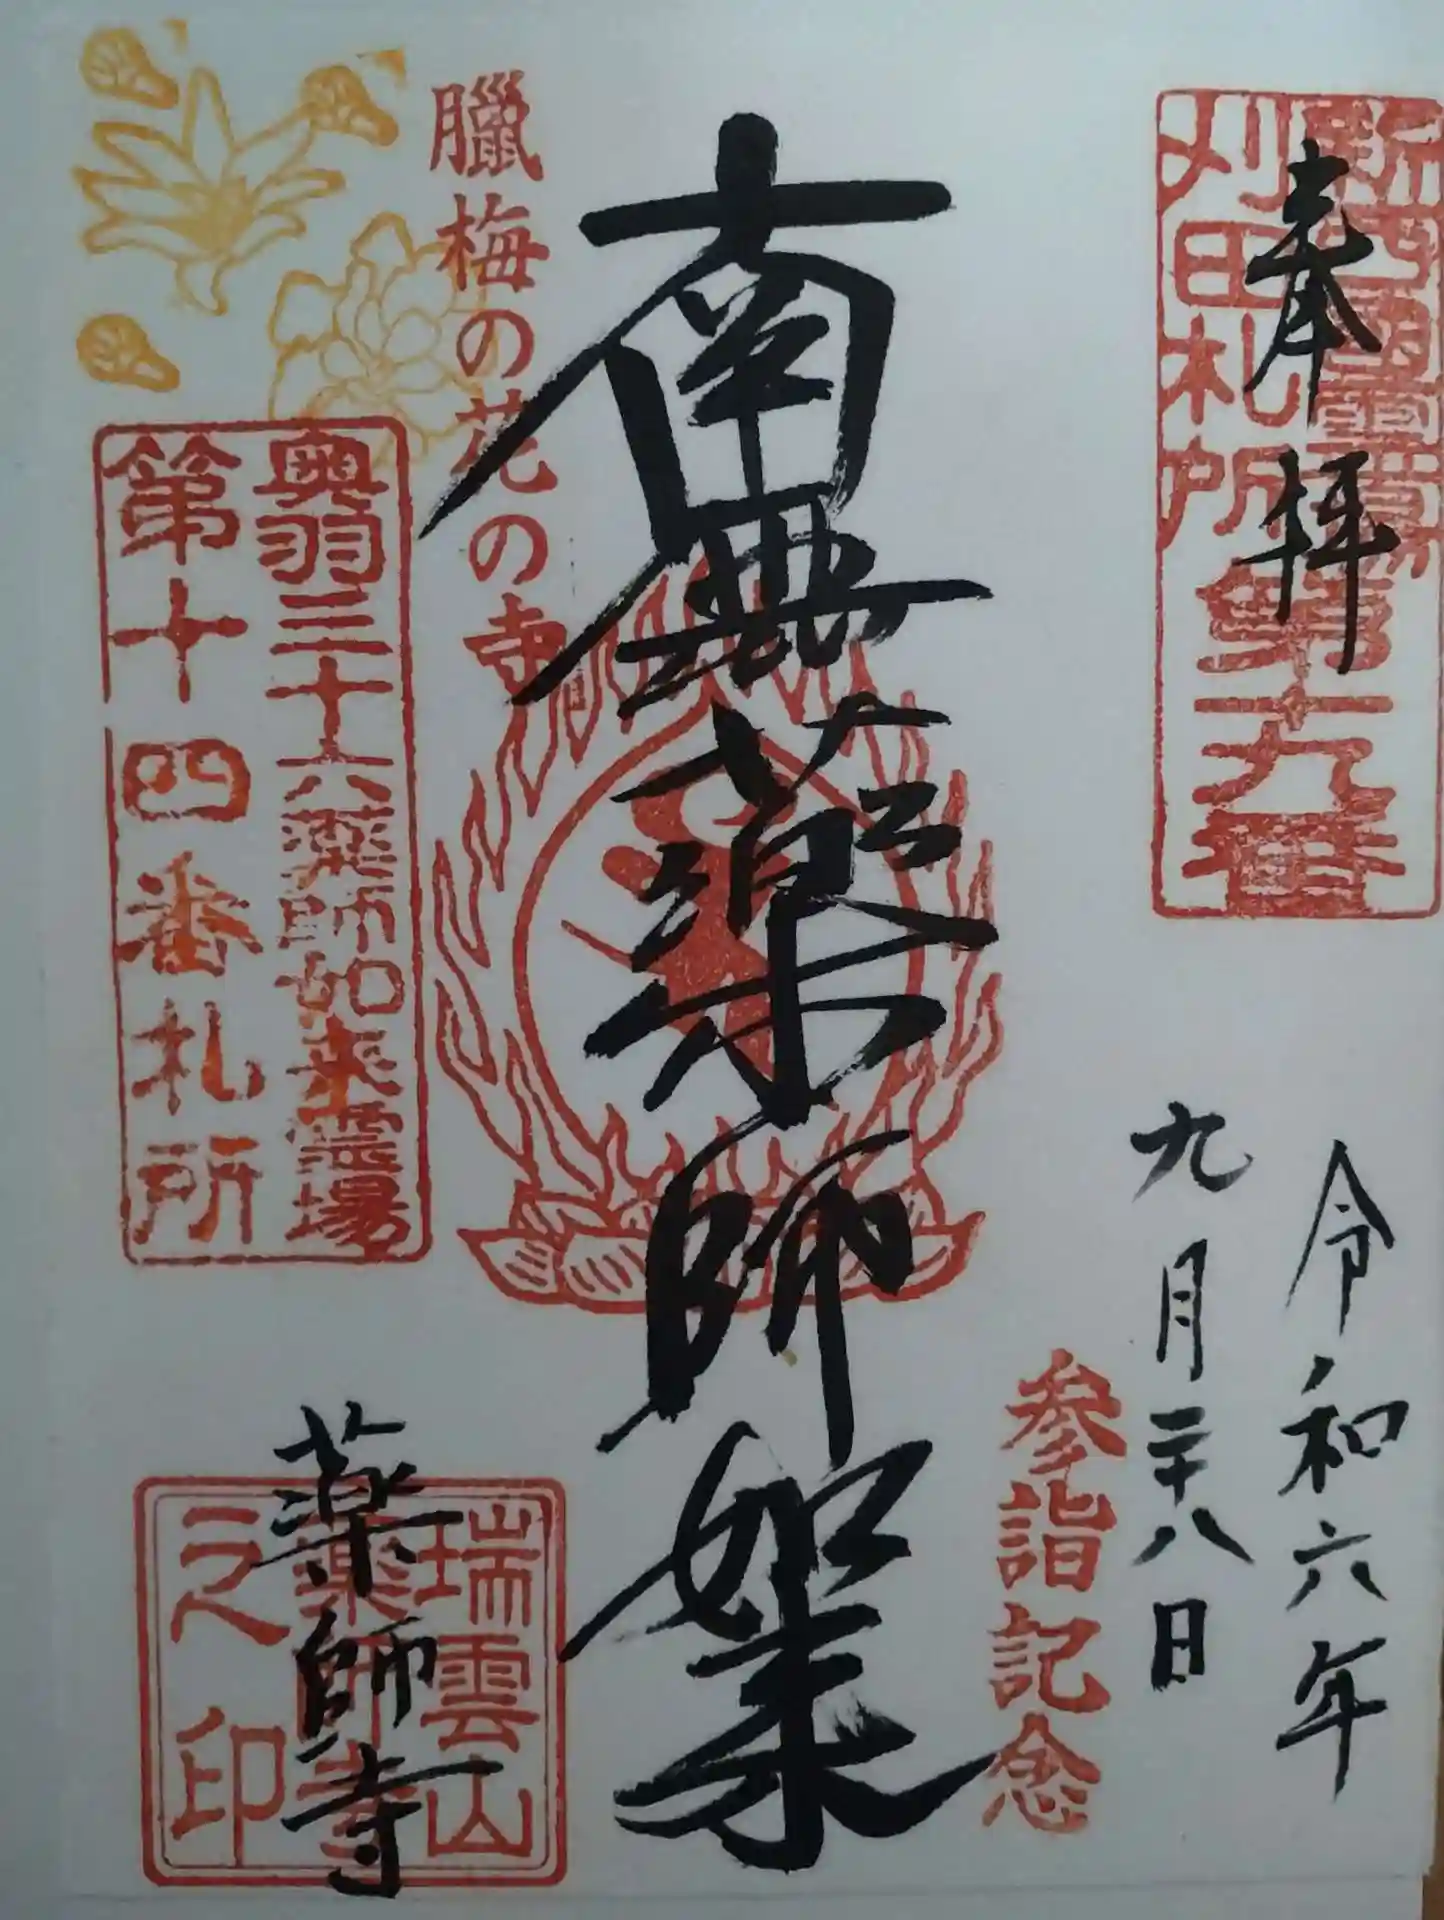 奉拝
新西國霊場
刈田札所第十九番
令和六年
九月二十八日
参詣記念
南無薬師如来
臘梅の花の寺
奥羽三十六薬師如来霊場
第十四番札所
薬師寺
瑞雲山
薬師寺
之印